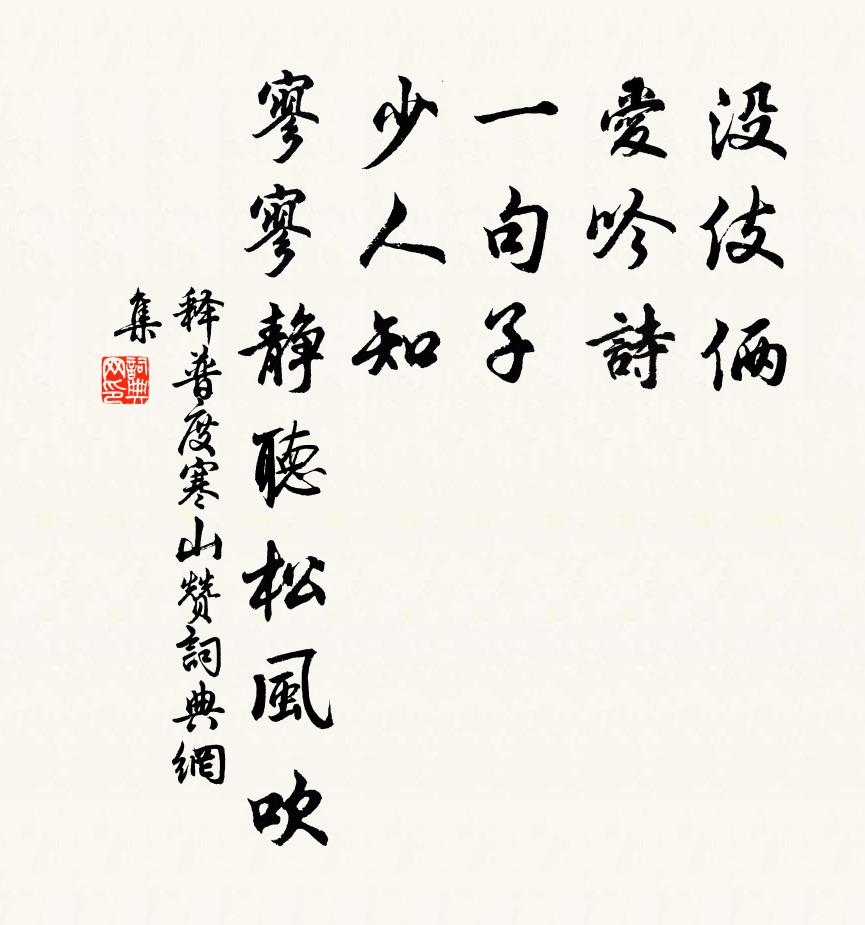 没伎倆
愛吟詩
一句子
少人知
寥寥靜聽松風吹
释普度寒山赞詞典網
集
詞典
网印